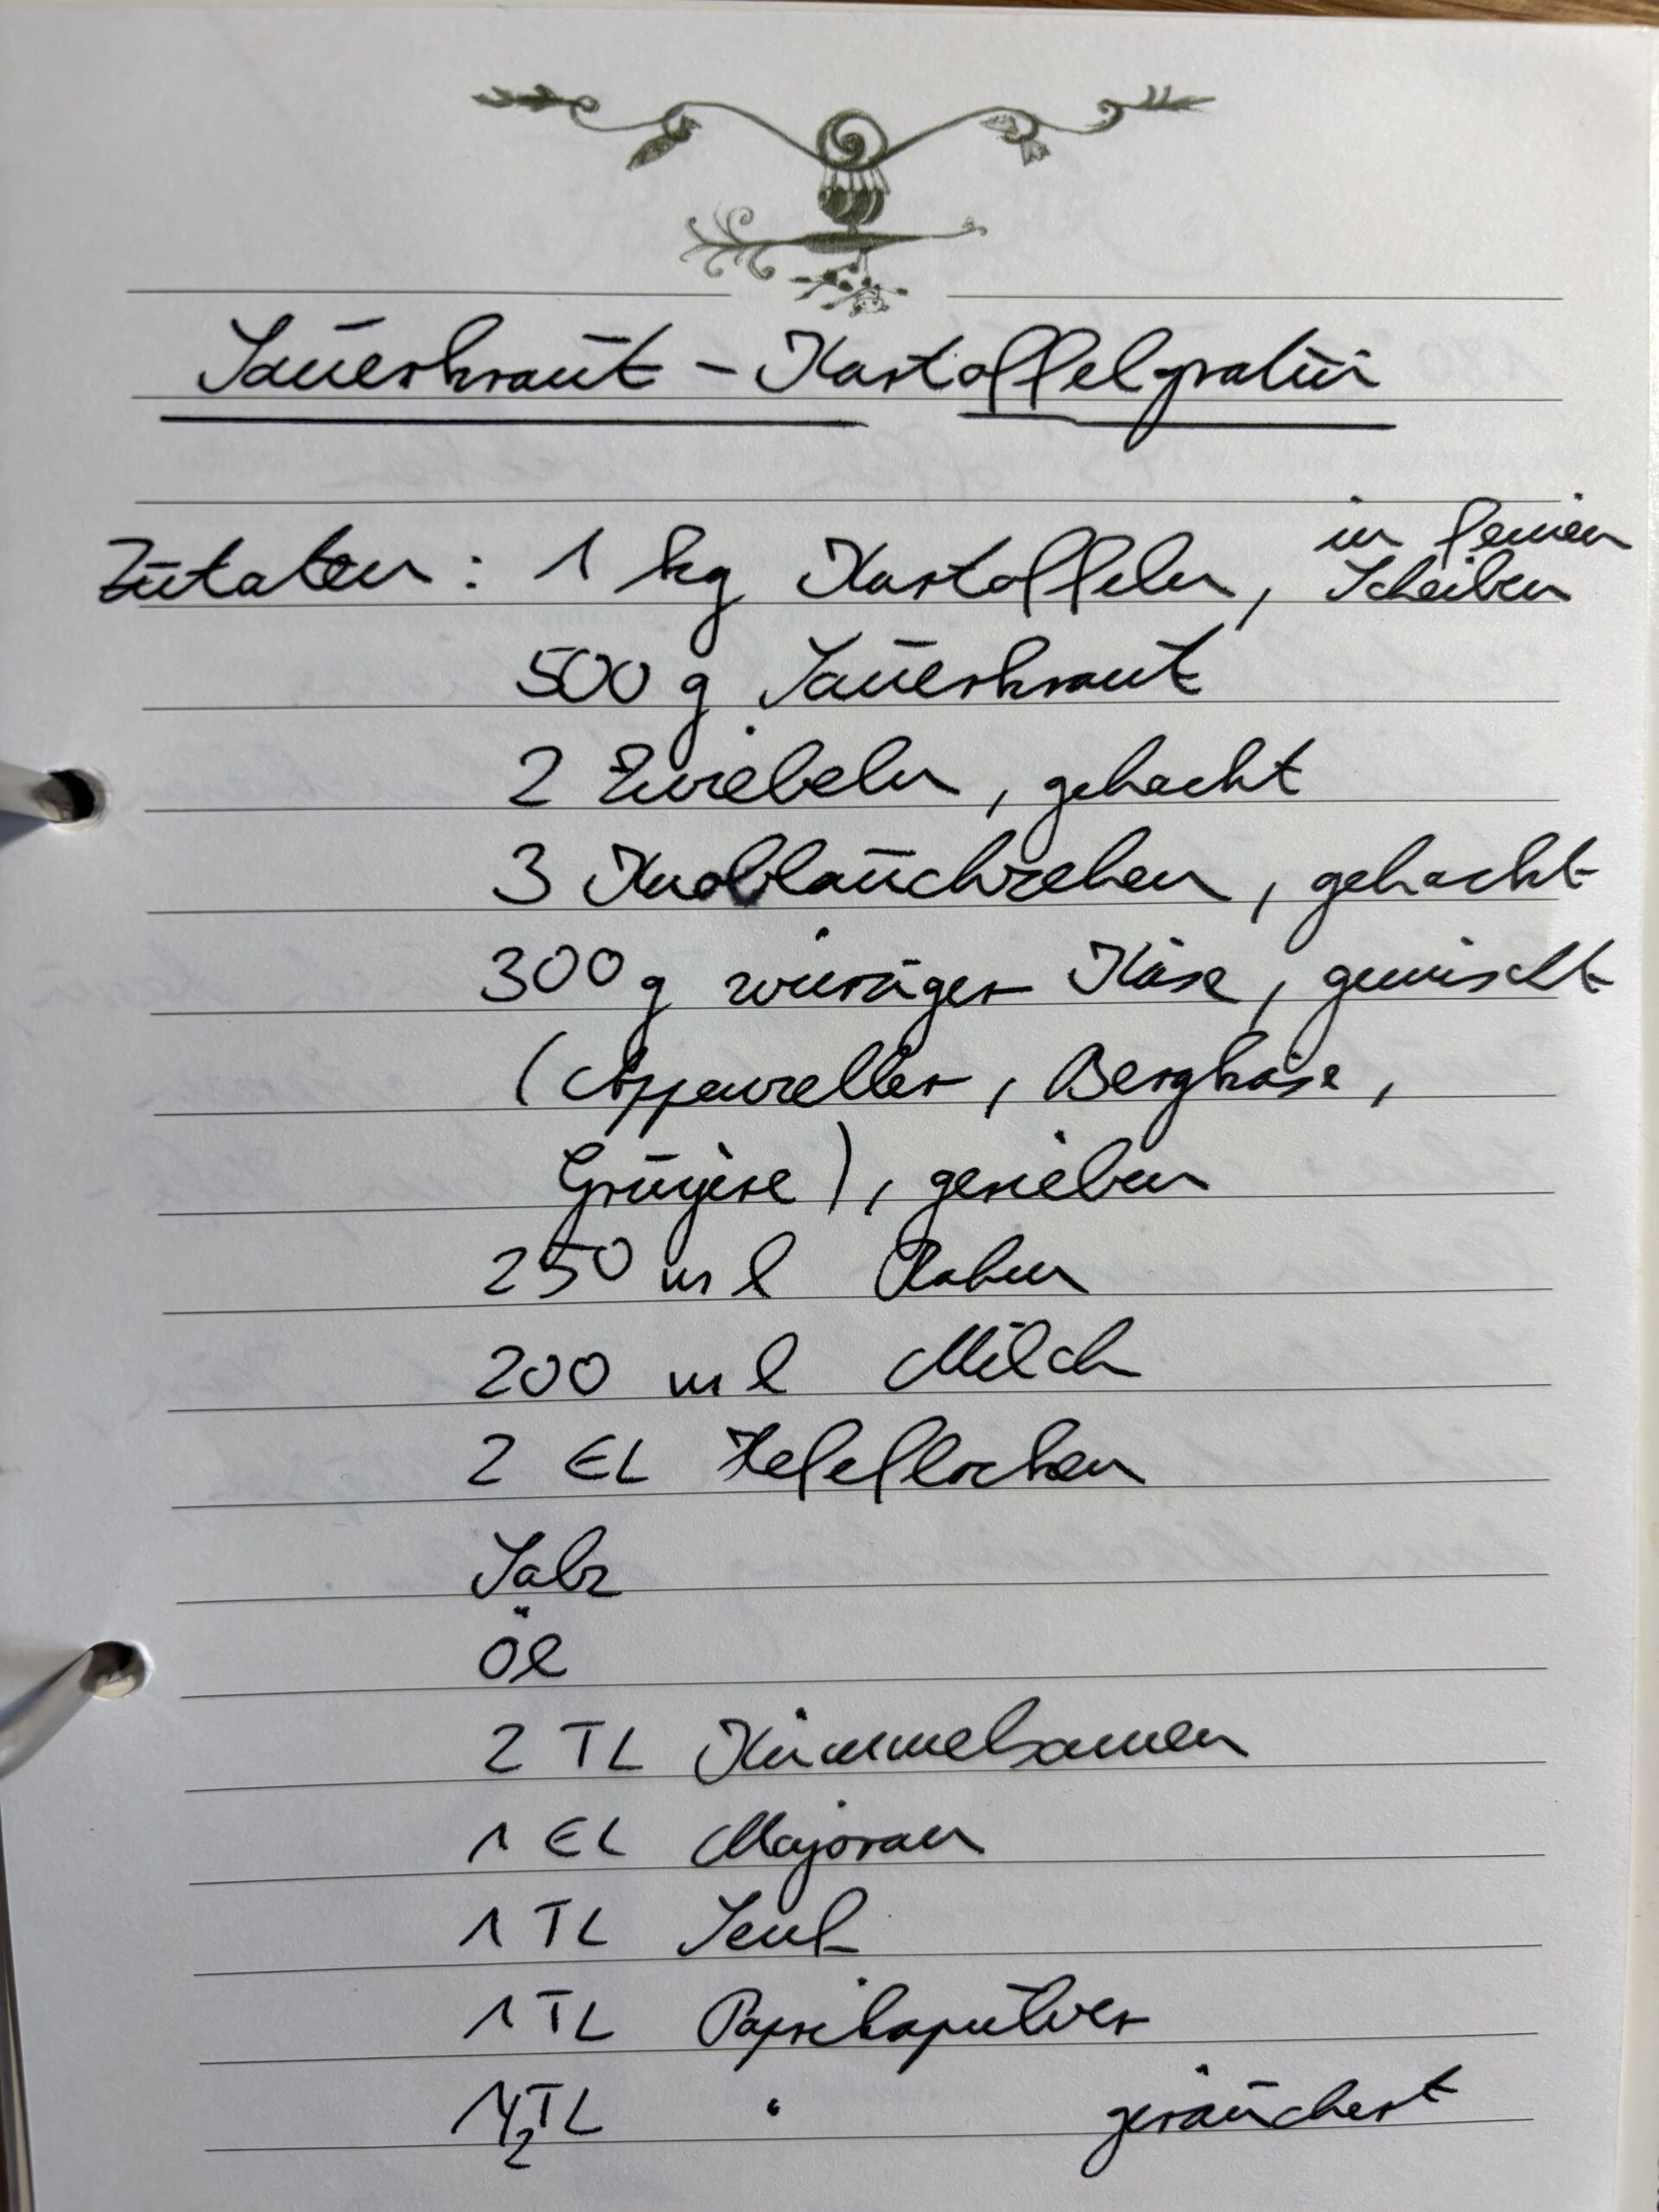 Sauerkraut - Kartoffelgratin
Zutaten: 1 kg Kartoffeln, in feinen Scheiben
500 g Sauerkraut
2 Zwiebeln, gehackt
3 Knoblauchzehen, gehackt
300 g würziger Käse, gemischt
(Appenzeller, Bergkäse,
Gruyère), gerieben
250 ml Rahm
200 ml Milch
2 EL Hefeflocken
Salz
Öl
2 TL Kümmelsamen
1 EL Majoran
1 TL Senf
1 TL Paprikapulver
1/2 TL " geräuchert